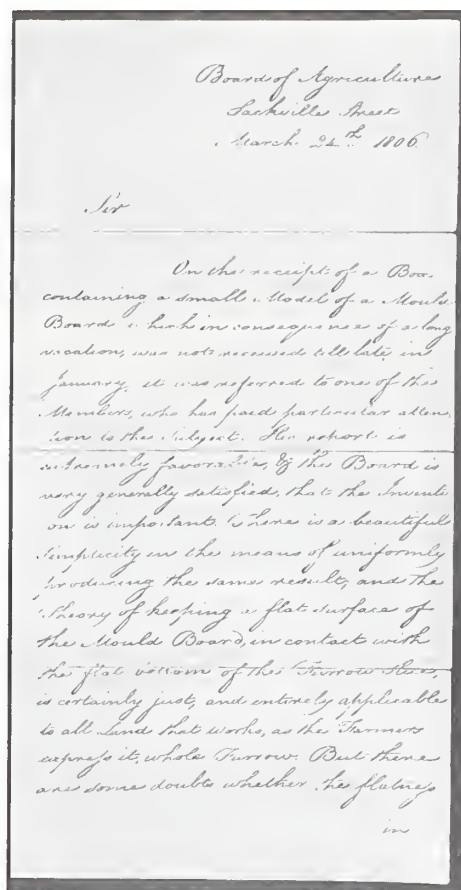 Board of Agriculture
Sackville Street
March 24th 1806.
Sir
On the receipt of a Box
containing a small Model of a Mould
Board which in consequence of a long
vacation, was not received till late in
January, it was referred to one of the
Members, who has paid particular atten
tion to the Subject. His report is
extremely favorable, & the Board is
very generally satisfied, that the Inventi
on is important. There is a beautiful
simplicity in the means of uniformly
producing the same result, and the
Theory of keeping a flat surface of
the Mould Board, in contact with
the flat bottom of the Furrow Slice,
is certainly just, and entirely applicable
to all Land that works, as the Farmers
express it, whole Furrow. But there
are some doubts whether the flatness
in